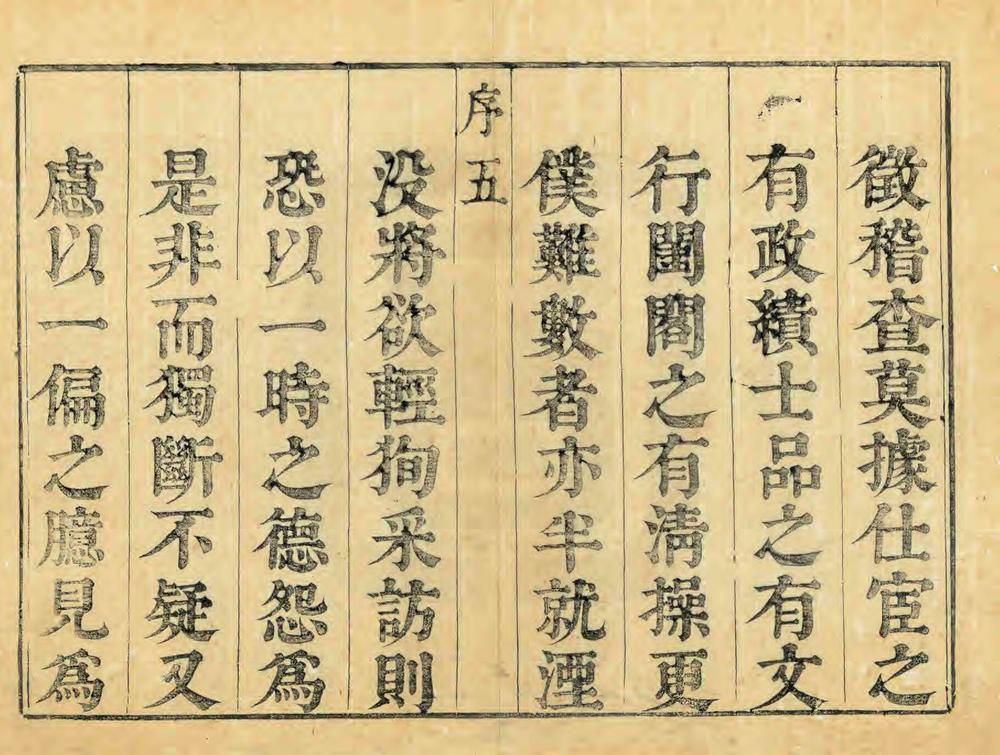 徵稽查莫據仕宦之
有政績士品之有文
行閨閤之有淸操更
僕難數者亦半就湮
序五
没將欲輕狥采訪則
恐以一時之德怨爲
是非而獨斷不疑又
慮以一偏之臆見爲